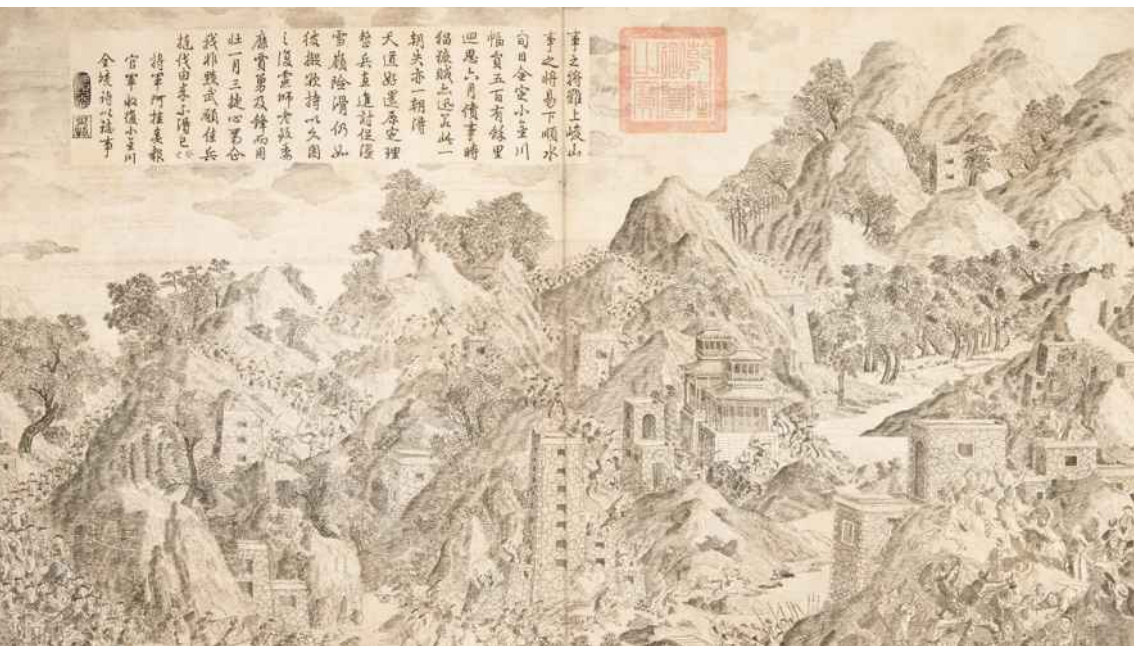 事之将難上峻山
事之将易下順水
旬日全定小金川
幅員五百有餘里
迴思六月僨事時
猖獗賊亦迅若此一
朝失亦一朝得
天道好還原定理
整兵直進討促浸
雪嶺險滑仍如
彼擬欲持以久困
之復虞師老致委
靡賈勇及鋒而用
壮一月三捷心
我非黷武願佳兵
撻伐由来不得已
将軍阿桂奏報
官軍收復小金川
全境詩以誌事